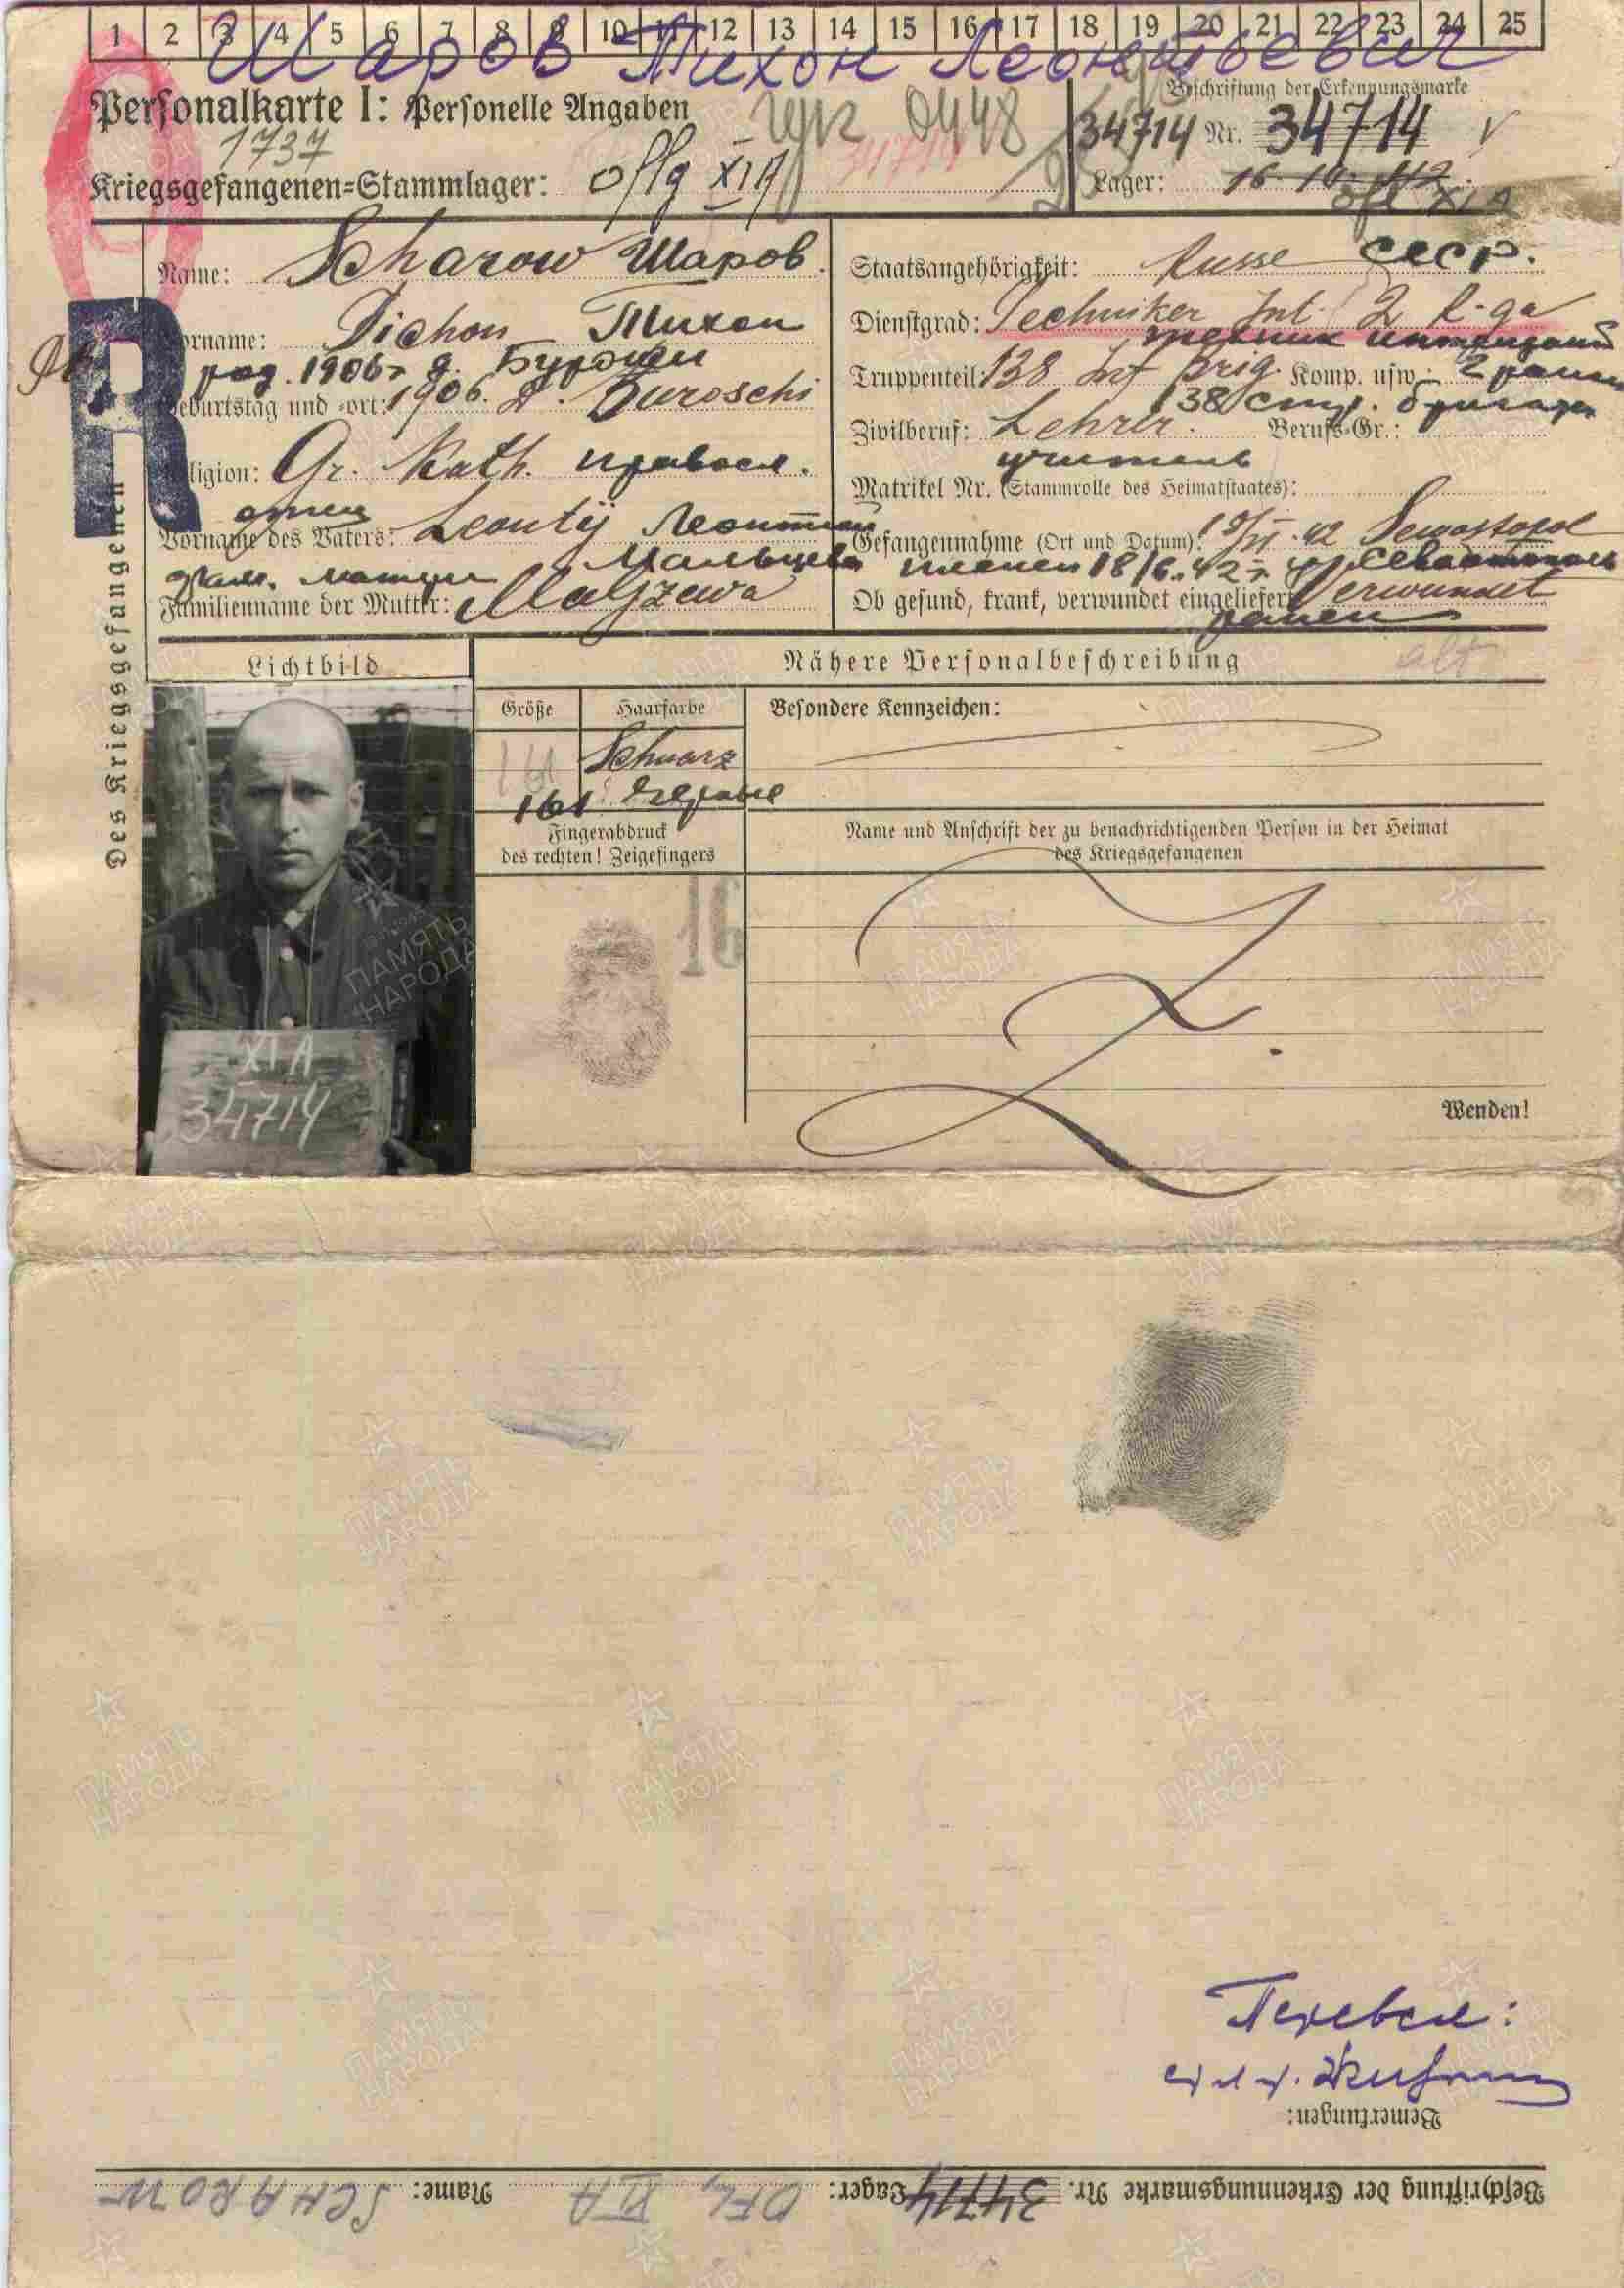 1 2 3 4 5 6 7 8 9 10 11 12 13 14 15 16 17 18 19 20 21 22 23 24 25
Шаров Тихон Леонтьевич
Personalkarte I: Personelle Angaben
0448
Beschriftung der Erkennungsmarke
34714 Nr. 34714
1737
Kriegsgefangenen=Stammlager: Oflg XI A
34714
Lager: 16.10.42
Ofl XI A
Des Kriegsgefangenen
R
Name: Scharow Шаров.
Vorname: Tichon Тихон
род. 1906 г д. Бурощи
Geburtstag und =ort: 1906. D. Buroschi
Religion: Gr. Kath. правосл.
отец
Vorname des Vaters: Leontij Леонтий
фам. матери Мальцева
Familienname der Mutter: Malzewa
Staatsangehörigkeit: Russe СССР.
Dienstgrad: Techniker Int. 2 R-ga
техник интендант
Truppenteil: 138 Inf Brig. Komp. usw.: 2 ранга
138 стр. бригада
Zivilberuf: Lehrer. Berufs=Gr.:
учитель
Matrikel Nr. (Stammrolle des Heimatstaates):
Gefangennahme (Ort und Datum): 18/VI.42 Sewastopol
пленен 18/6.42 г Севастополь
Ob gesund, krank, verwundet eingeliefert: Verwundet
ранен
Lichtbild
Nähere Personalbeschreibung
alt
Größe
Haarfarbe
Besondere Kennzeichen:
161 Schwarz
161 черные
Fingerabdruck
des rechten! Zeigefingers
Name und Anschrift der zu benachrichtigenden Person in der Heimat
des Kriegsgefangenen
16
XI A
34714
Wenden!
Перевел:
Bemerkungen:
Beschriftung der Erkennungsmarke Nr. 34714 Lager: OFL XI A Name: SCHAROW
ПАМЯТЬ
НАРОДА